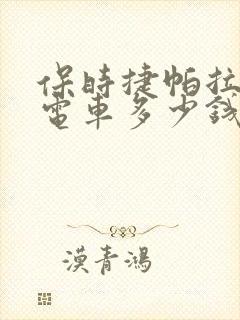 保時捷帕拉
電車多少錢
漢青鴻